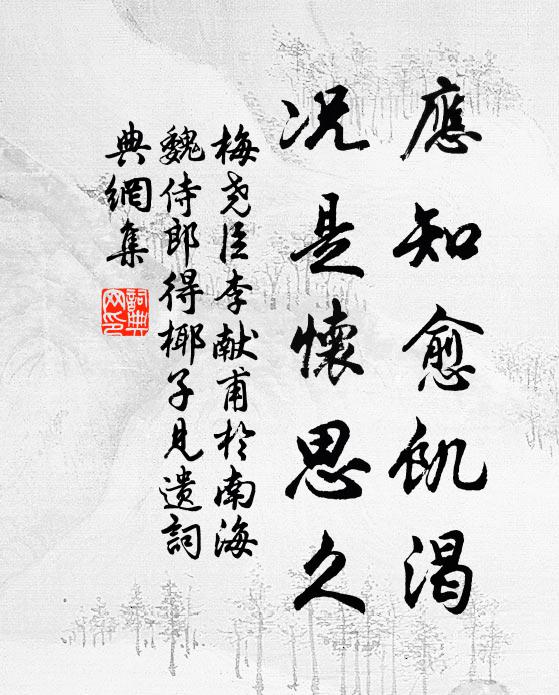 應知愈飢渴
况是懷思久
梅尧臣李献甫於南海
魏侍郎得椰子見遺詞
典網集
詞典網印